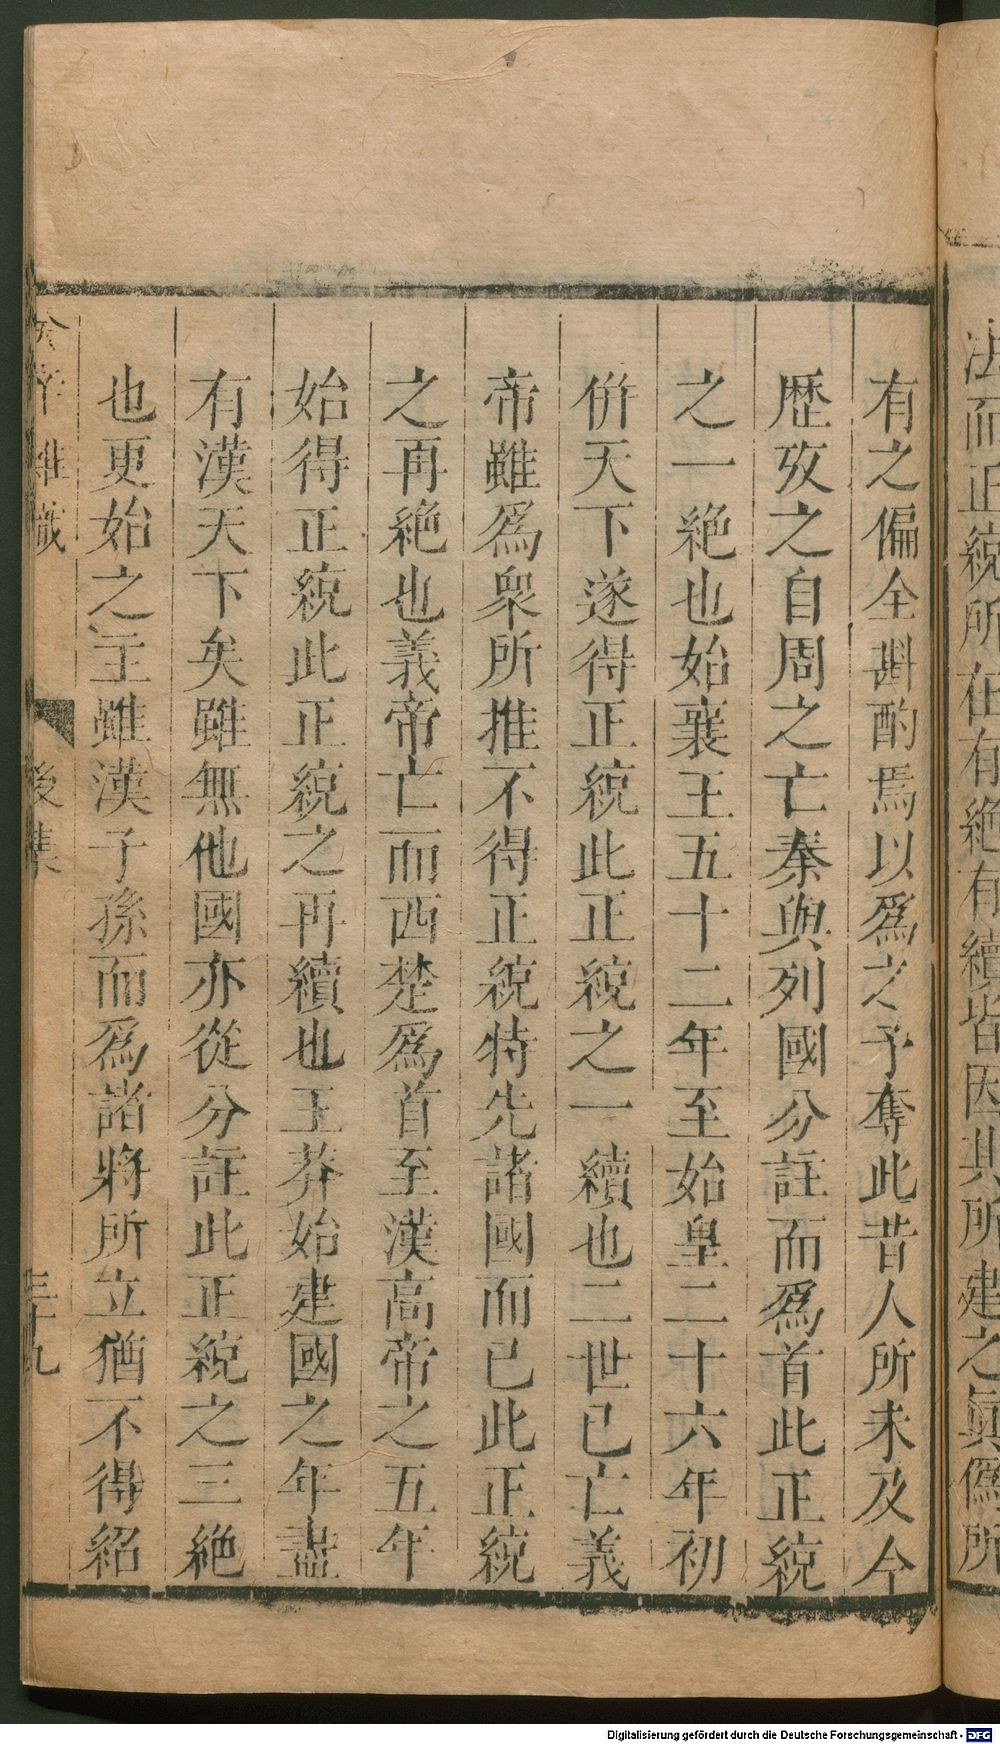 法而正統所在有絶有續皆因其所建之眞僞所
有之偏全斟酌焉以爲之予奪此昔人所未及今
歷攷之自周之亡秦與列國分註而爲首此正統
之一絶也始襄王五十二年至始皇二十六年初
併天下遂得正統此正統之一續也二世已亡義
帝雖爲衆所推不得正統特先諸國而已此正統
之再絶也義帝亡而西楚爲首至漢高帝之五年
始得正統此正統之再續也王莽始建國之年盡
有漢天下矣雖無他國亦從分註此正統之三絶
也更始之主雖漢子孫而爲諸將所立猶不得紹
癸辛雜識
後集
三十九
Digitalisierung gefördert durch die Deutsche Forschungsgemeinschaft - DFG